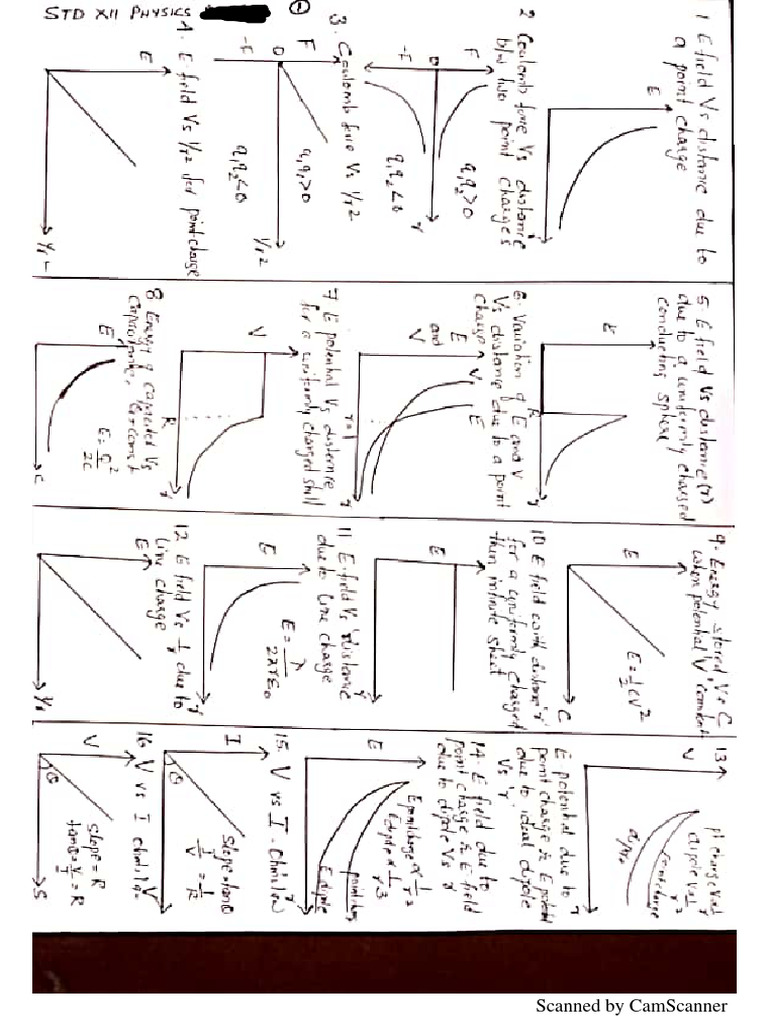 STD XII PHYSICS
1 E field Vs distance due to
a point charge
E
2 Coulomb force Vs distance
b/w two point charges
F
0
-F
q1q2>0
q1q2<0
r
3. Coulomb force Vs 1/r2
F
0
-F
q1q2>0
q1q2<0
1/r2
4. E-field Vs 1/r2 for point-charge
E
5. E field Vs distance (r)
due to a uniformly charged
conducting sphere
E
R
r
6. Variation of E and V
Vs distance due to a point
charge
E
and
V
V
E
r
7 E potential Vs distance
for a uniformly charged shell
V
R
r
8 Energy of capacitor Vs
capacitance,
E
E = Q2/2C
C
9. Energy stored Vs C
when potential V constant
E
E = 1/2 CV2
C
10 E field with distance 'r'
for a uniformly charged
thin infinite sheet
E
r
11 E-field Vs distance
due to line charge
E
E = λ/2πrε0
r
12 E field Vs 1/r due to
Line charge
E
1/r
13
E-potential due to
point charge & E potential
due to ideal dipole
Vs 'r'
V
r
14. E field due to
point charge & E-field
due to dipole Vs r
E
E point charge ∝ 1/r2
E dipole ∝ 1/r3
E dipole
r
15. V vs I - Ohm's law
I
θ
slope = tanθ
I/V = 1/R
V
16 V vs I
V
θ
Slope = R
tanθ = V/I = R
Scanned by CamScanner